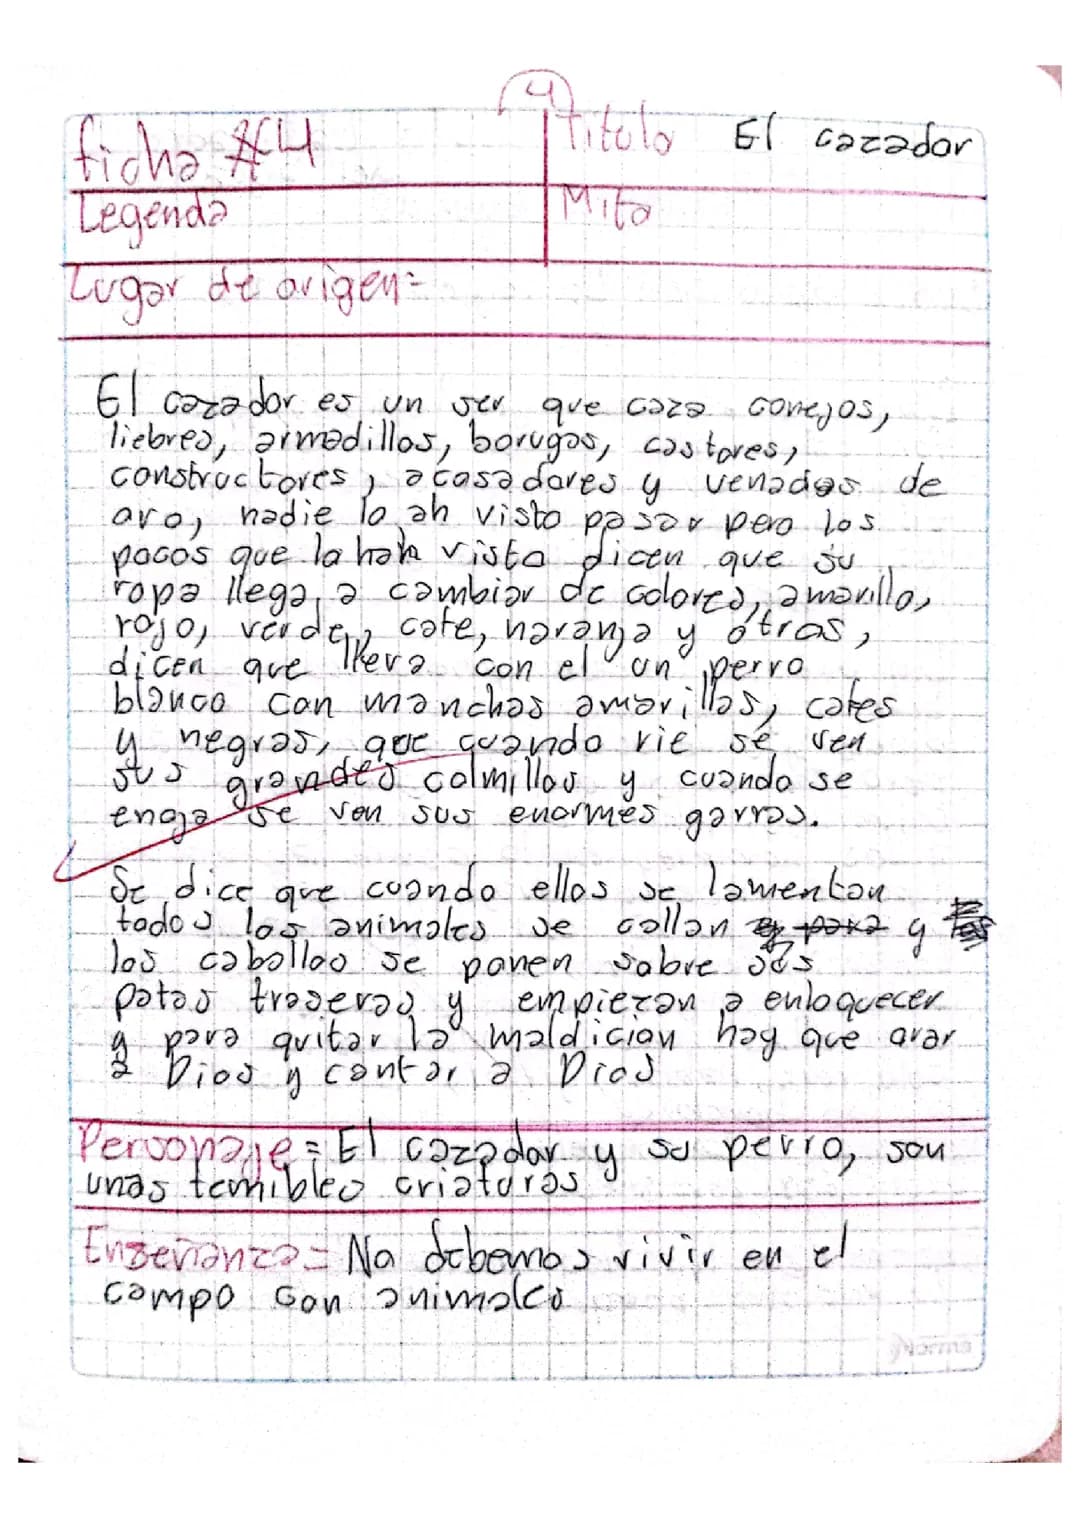 4
ficha #4
Titulo El cazador
Legenda
Mito
Lugar de origen=
El cazador es un ser que caza conejos,
liebres, armadillos, borugos, castores,
constructores, acosadores y venados de
oro, nadie lo ah visto pasar pero los
pocos que lo han visto dicen que su
ropa llega a cambiar de colores, amarillo,
rojo, verde, cafe, naranja y otros,
dicen que lleva con el un perro
blanco con manchas amarillas, cafes
y negras, que cuando rie se ven
sus grandes colmillos y cuando se
enoja se ven sus enormes garras.
Se dice que cuando ellos se lamentan
todos los animales se callan y para y
los caballos se ponen sobre sus
patas traseras y empiezan a enloquecer
y para quitar la maldicion hay que orar
a Dios y cantar a Dios
Personaje= El cazador y su perro, son
unas temibles criaturas
Enseñanza= No debemos vivir en el
campo con animales
Norma